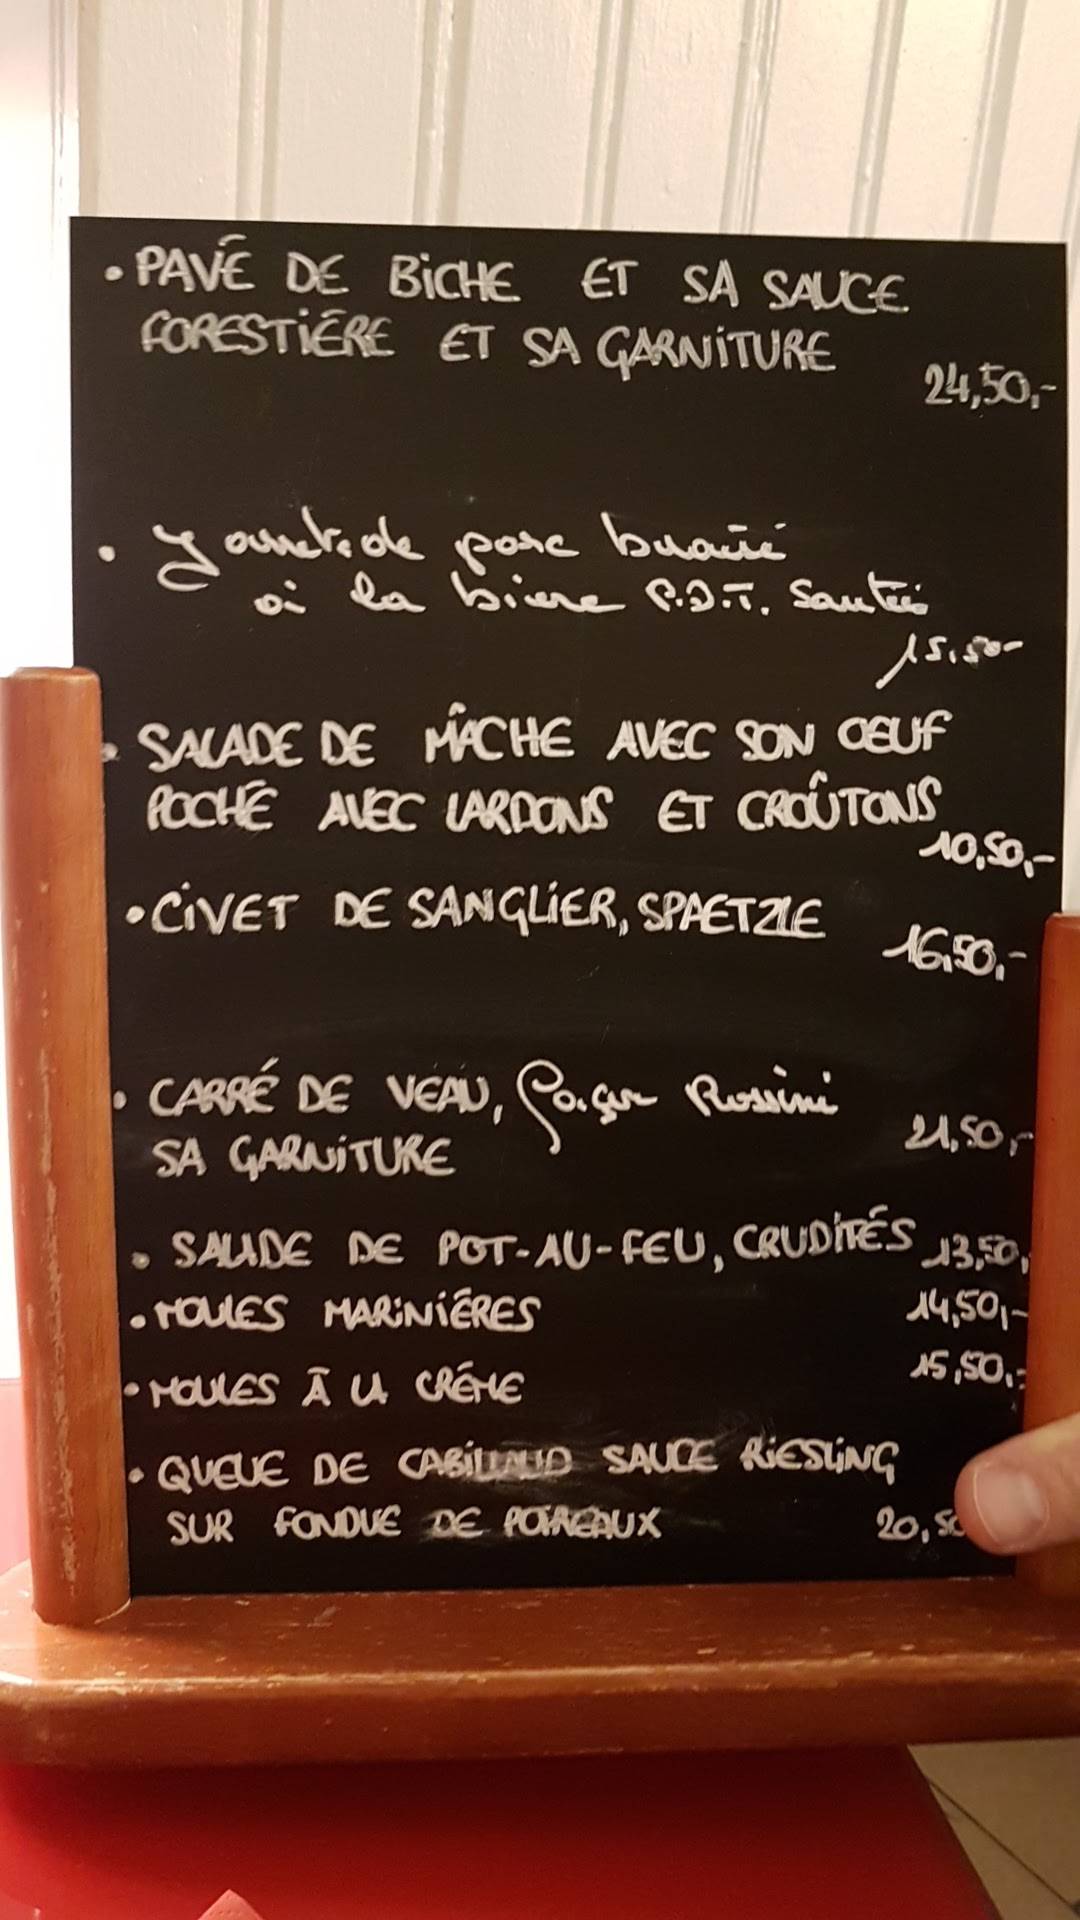 • PAVÉ DE BICHE ET SA SAUCE
FORESTIÈRE ET SA GARNITURE
24,50,-
• Jarret de porc braisé
à la bière P.D.T. Sautées
15,50-
• SALADE DE MÂCHE AVEC SON ŒUF
POCHÉ AVEC LARDONS ET CROÛTONS
10,50,-
• CIVET DE SANGLIER, SPAETZLE
16,50,-
• CARRÉ DE VEAU, façon Rossini
SA GARNITURE 21,50,-
• SALADE DE POT-AU-FEU, CRUDITÉS 13,50,
• MOULES MARINIÈRES 14,50,-
• MOULES À LA CRÈME 15,50,-
• QUEUE DE CABILLAUD SAUCE RIESLING
SUR FONDUE DE POIREAUX 20,50